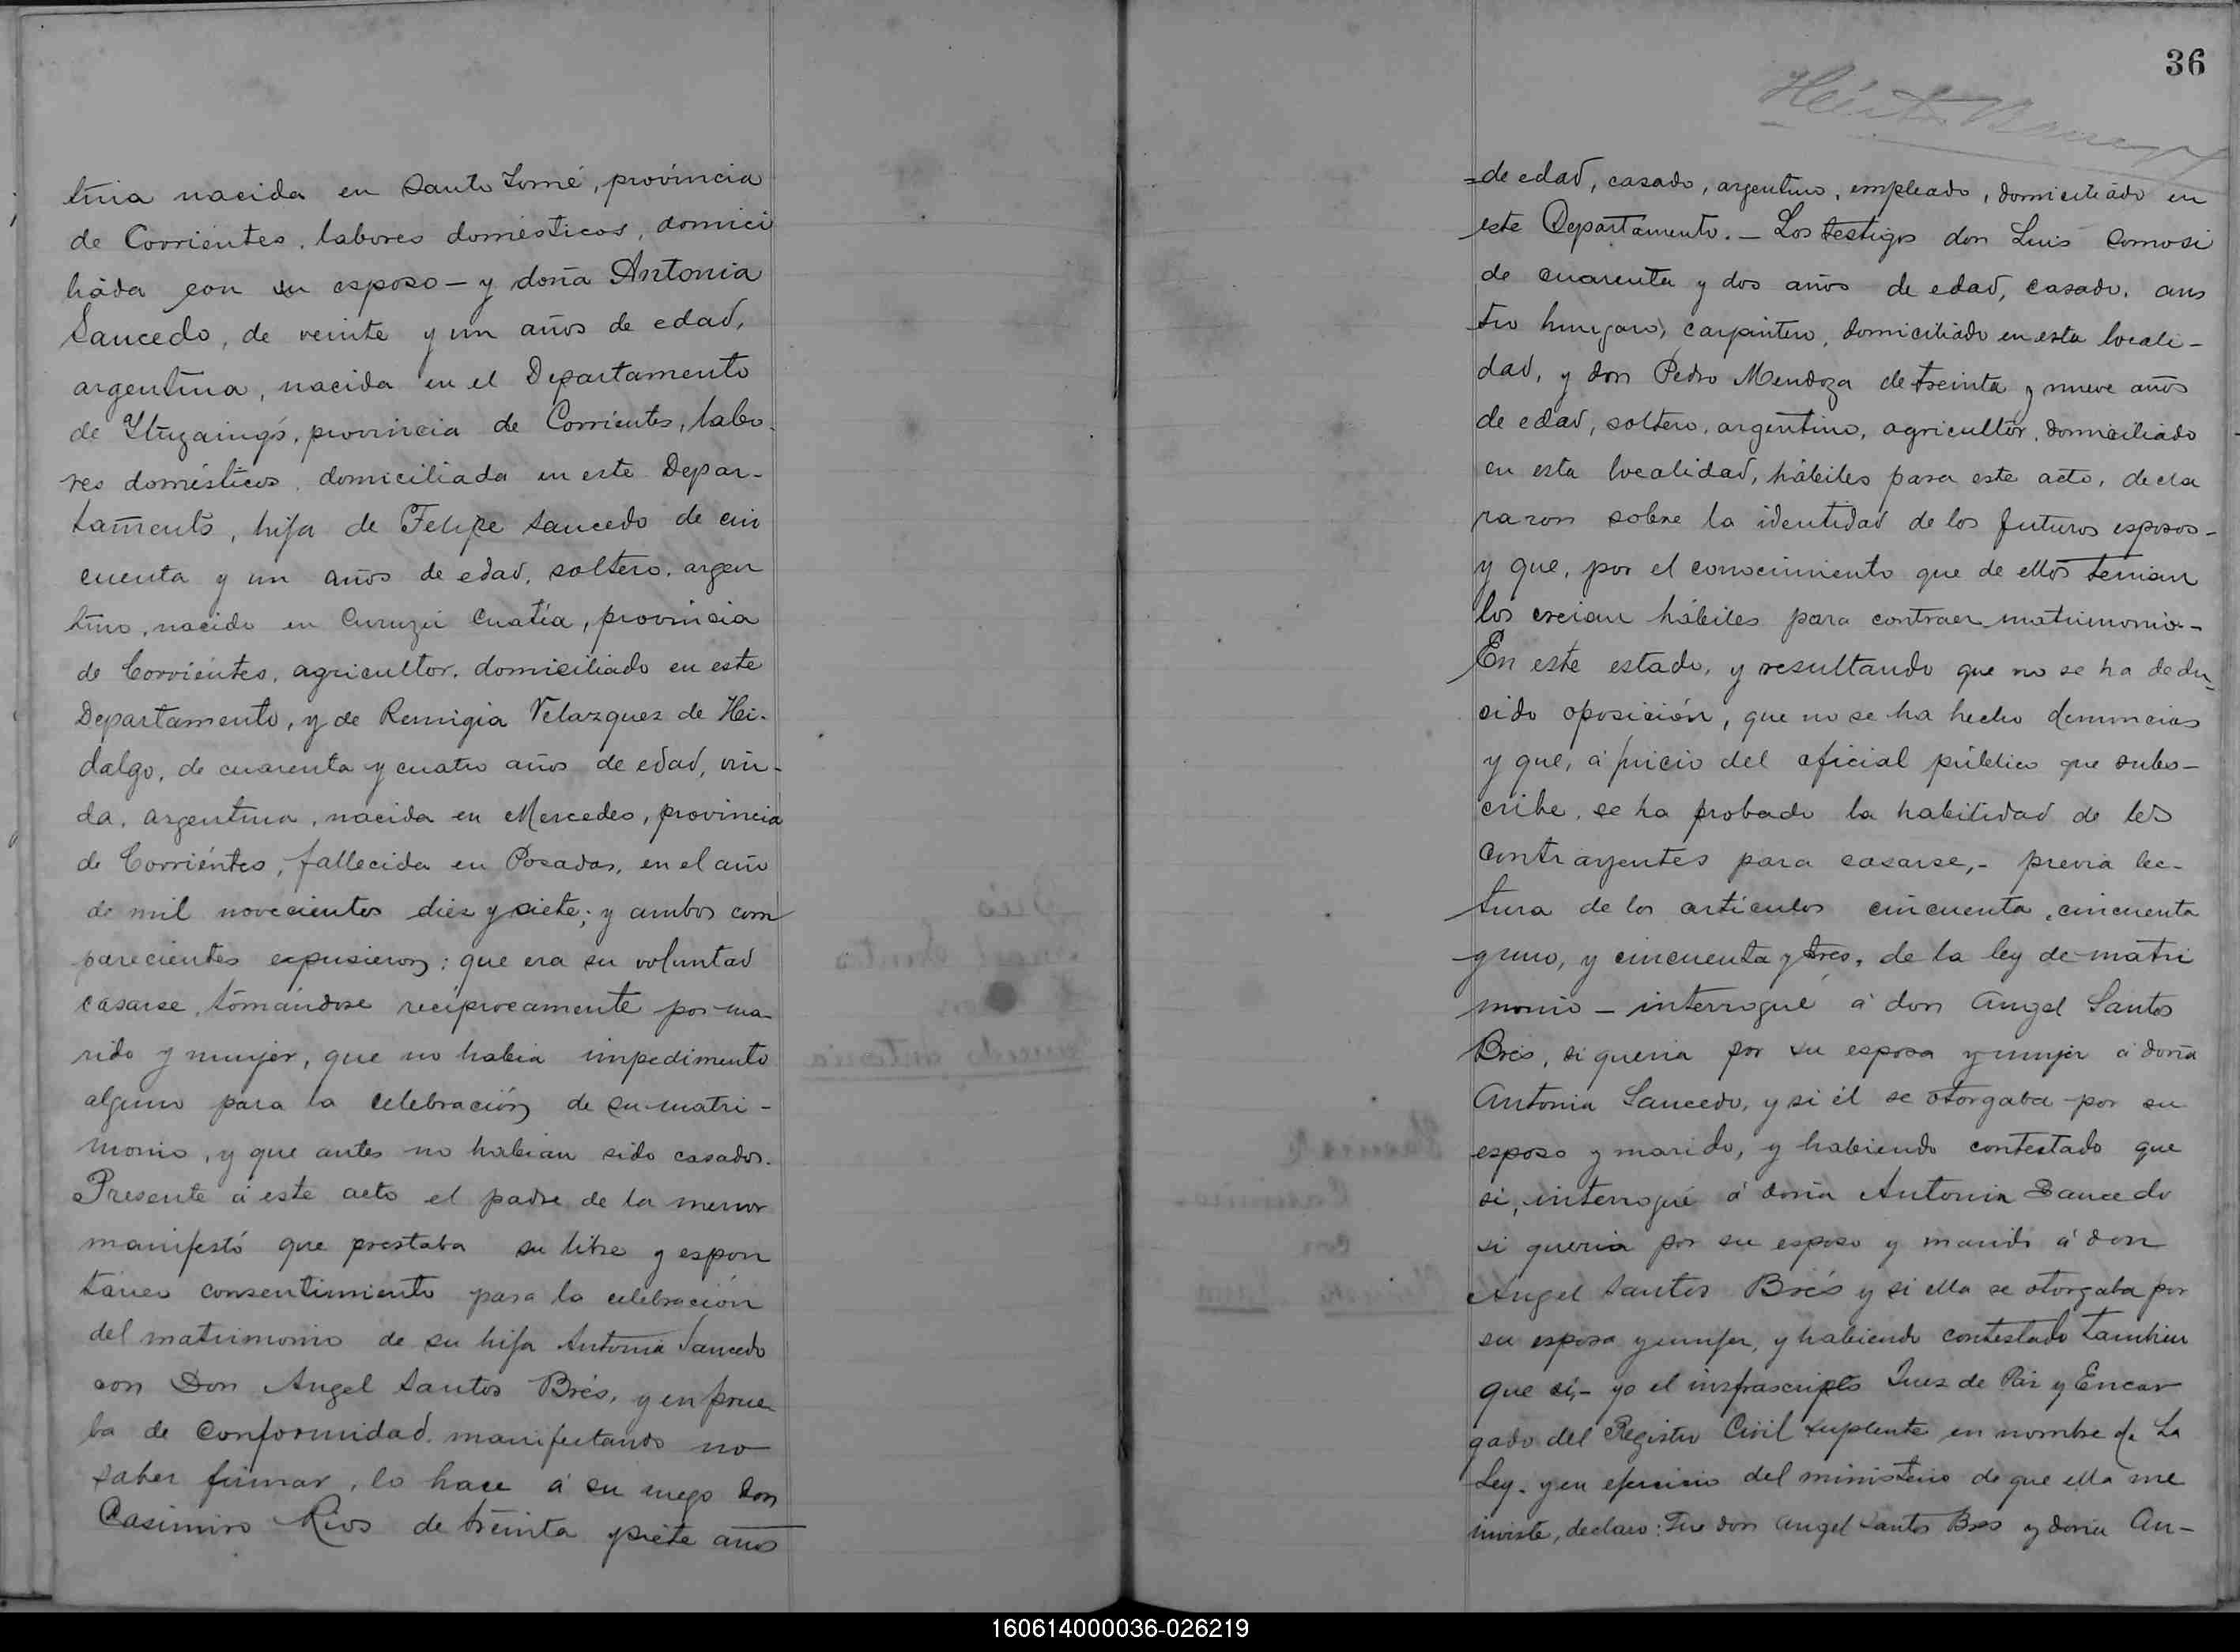 tina nacida en Santo Tomé, provincia
de Corrientes, labores domésticos, domici
liada con su esposo — y doña Antonia
Saucedo, de veinte y un años de edad,
argentina, nacida en el Departamento
de Ytuzaingó, provincia de Corrientes, labo-
res domésticos, domiciliada en este Depar-
tamento, hija de Felipe Saucedo de cin
cuenta y un años de edad, soltero, argen
tino, nacido en Curuzú Cuatía, provincia
de Corrientes, agricultor, domiciliado en este
Departamento, y de Remigia Velazquez de Hei-
dalgo, de cuarenta y cuatro años de edad, viu-
da, argentina, nacida en Mercedes, provincia
de Corrientes, fallecida en Posadas, en el año
de mil novecientos diez y siete; y ambos com
parecientes expusieron: que era su voluntad
casarse, tomándose recíprocamente por ma-
rido y mujer, que no habia impedimento
alguno para la celebración de su matri-
monio, y que antes no habian sido casados.
Presente á este acto el padre de la menor
manifestó que prestaba su libre y espon
táneo consentimiento para la celebración
del matrimonio de su hija Antonia Saucedo
con Don Angel Santos Brés, y en prue-
ba de conformidad, manifestando no
saber firmar, lo hace á su ruego don
Casimiro Rios de treinta y siete años
36
Héctor
de edad, casado, argentino, empleado, domiciliado en
este Departamento. — Los testigos don Luis Comosi
de cuarenta y dos años de edad, casado, aus
tro hungaro, carpintero, domiciliado en esta locali-
dad, y don Pedro Mendoza de treinta y nueve años
de edad, soltero, argentino, agricultor, domiciliado
en esta localidad, hábiles para este acto, decla
raron sobre la identidad de los futuros esposos -
y que, por el conocimiento que de ellos tenian
los creian hábiles para contraer matrimonio.-
En este estado, y resultando que no se ha dedu-
cido oposición, que no se ha hecho denuncias
y que, á juicio del oficial público que subs-
cribe, se ha probado la habilidad de los
contrayentes para casarse,- previa lec-
tura de los artículos cincuenta, cincuenta
y uno, y cincuenta y tres, de la ley de matri
monio — interrogué á don Angel Santos
Brés, si queria por su esposa y mujer á doña
Antonia Saucedo, y si él se otorgaba por su
esposo y marido, y habiendo contestado que
si, interrogué á doña Antonia Saucedo
si queria por su esposo y marido á don
Angel Santos Brés y si ella se otorgaba por
su esposa y mujer, y habiendo contestado tambien
que si,- yo el insfrascripto Juez de Paz y Encar
gado del Registro Civil suplente en nombre de La
Ley, y en ejercicio del ministerio de que ella me
inviste, declaro: Que don Angel Santos Brés y doña An-
160614000036-026219